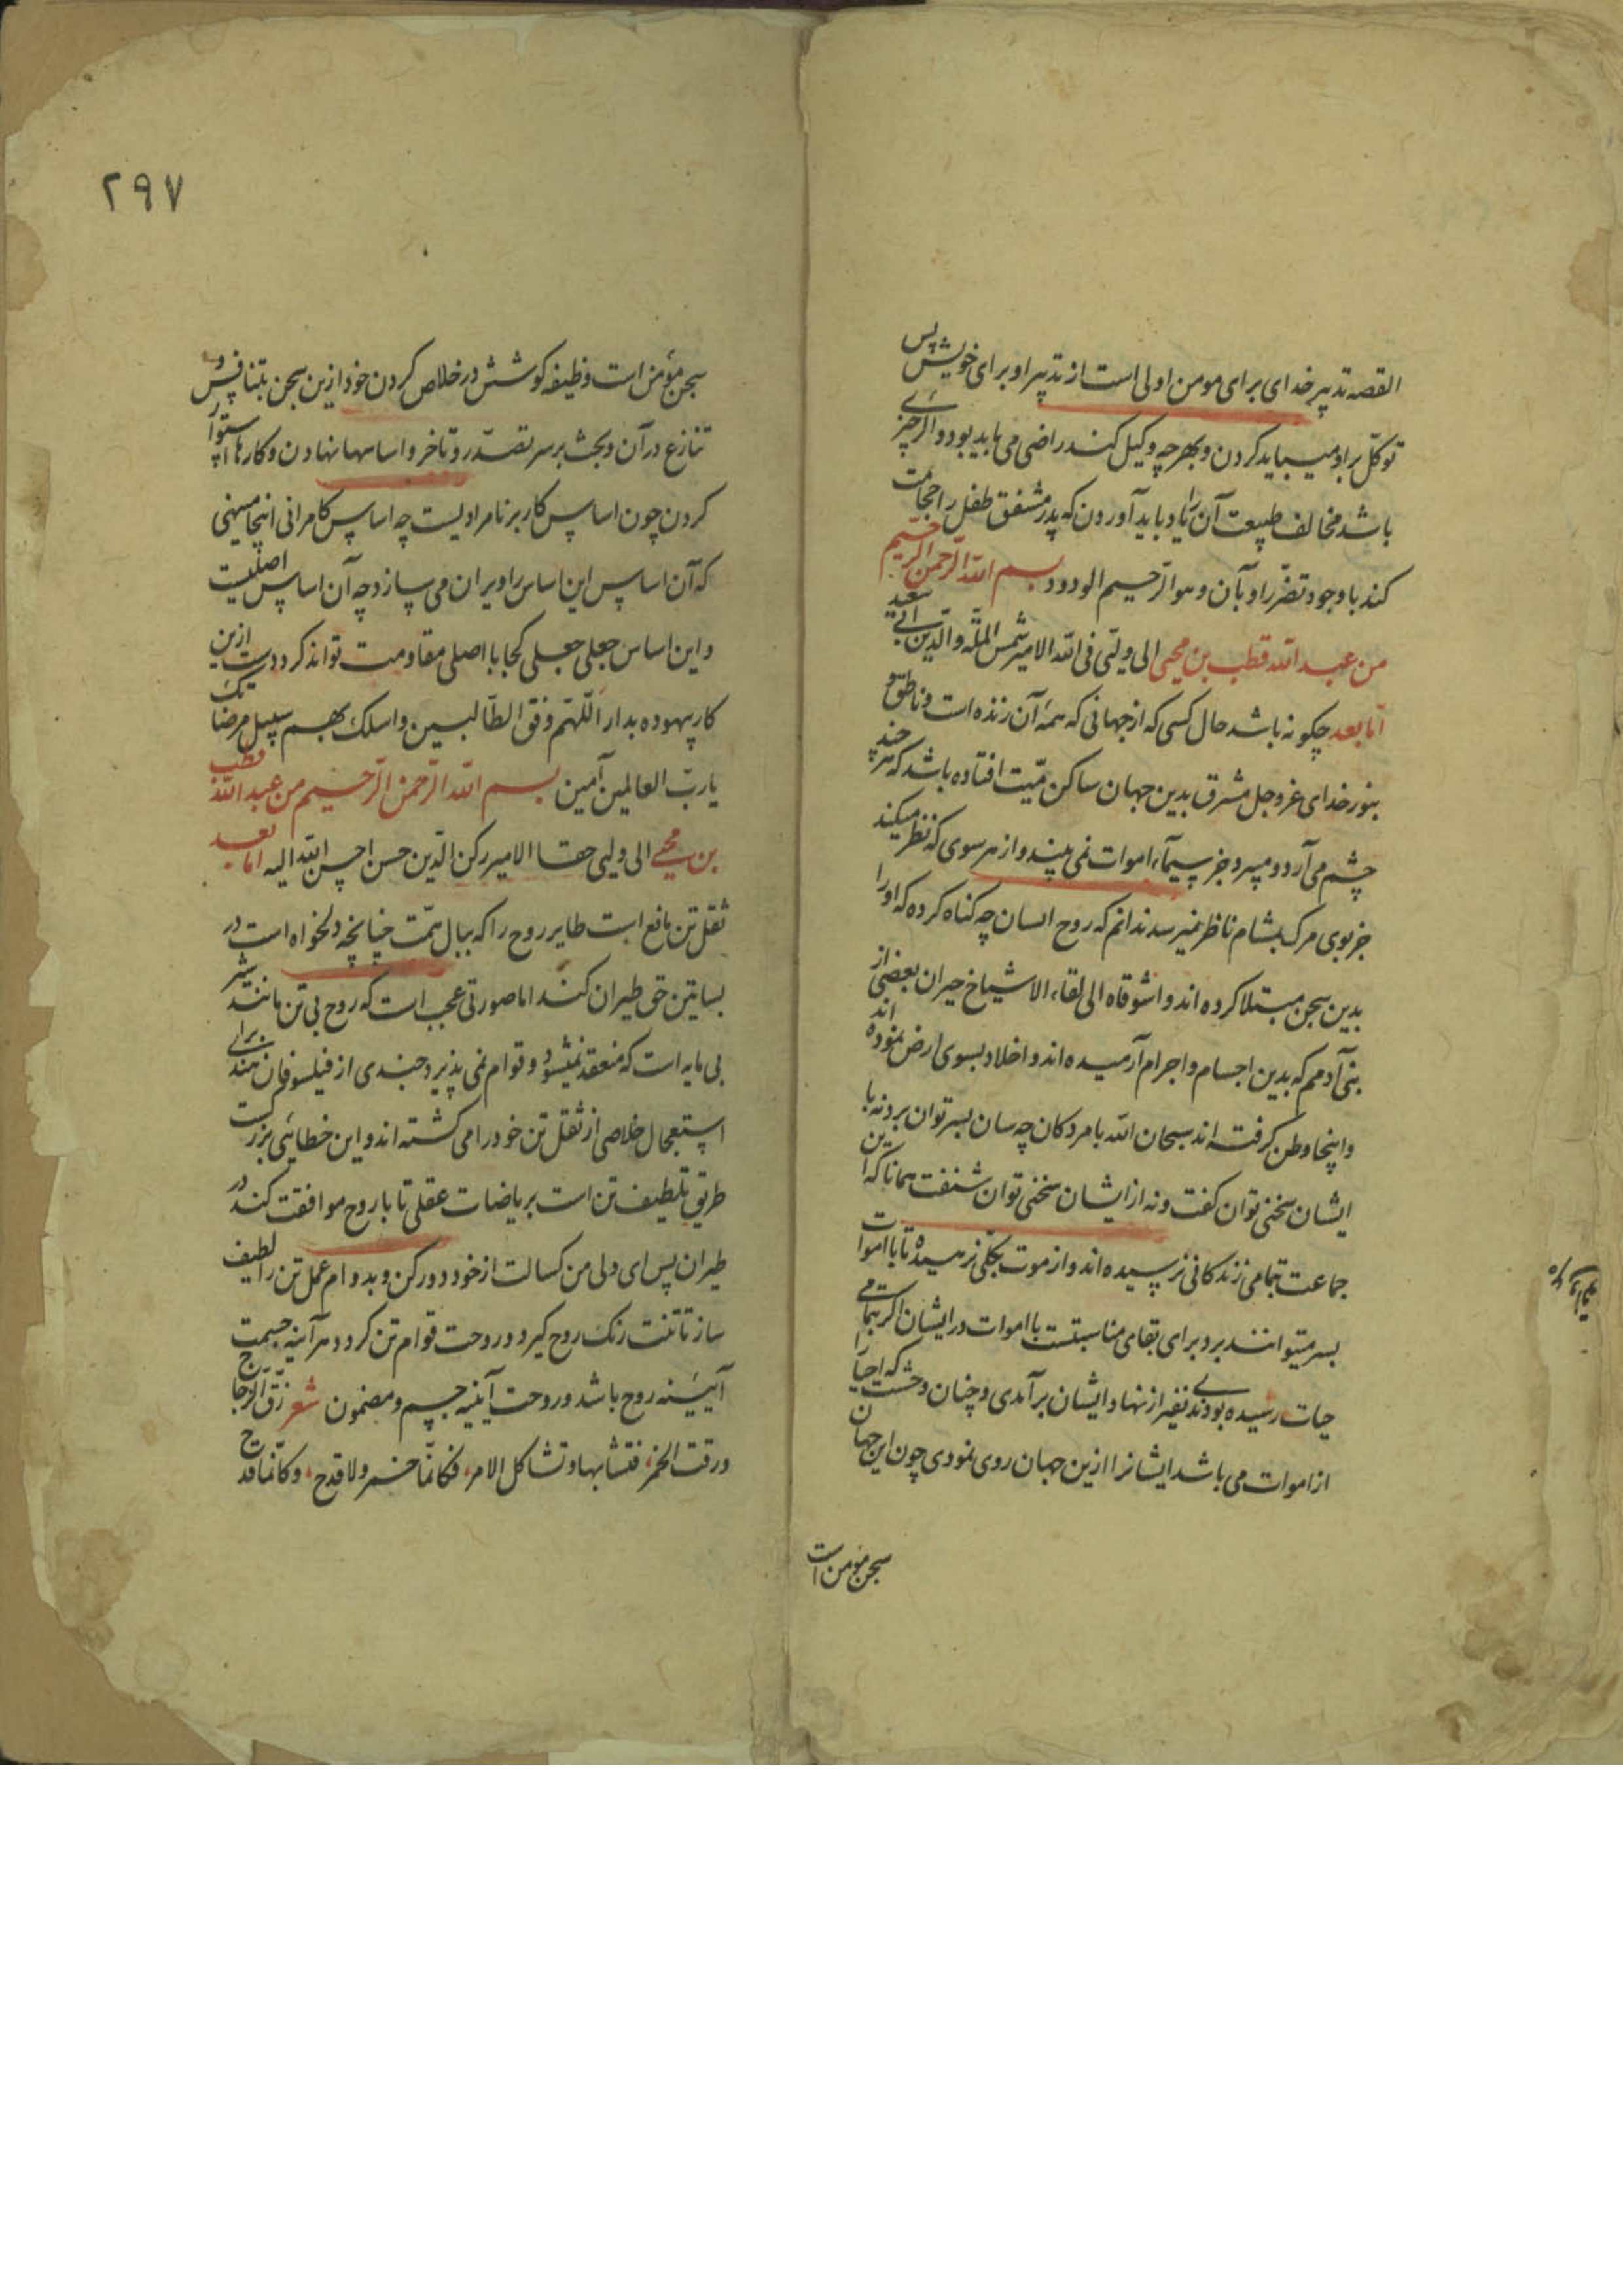 القصه تدبیر خدای برای مومن اولی است از تدبیر او برای خویش پس
توکّل براو میباید کردن و بهرچه وکیل کند راضی می باید بود و اگر چیزی
باشد مخالف طبیعت آن را یاد باید آوردن که پدر مشفق طفل را حجامت
کند با وجود تضرّر او بآن و هو الرّحیم الودود بسم الله الرّحمن الرّحیم
من عبد الله قطب بن محیی الی ولیّی فی الله الامیر شمس الملّه والدّین
امّا بعد چگونه باشد حال کسی که از جهانی که همۀ آن زنده است و ناطق و
بنور خدای عزوجل مشرق بدین جهان ساکن میّت افتاده باشد که هر چند
چشم می آرد و میبرد جز سیمآء اموات نمی بیند و از هر سوی که نظر میکند
جز بوی مرگ بمشام ناظر نمیرسد ندانم که روح انسان چه گناه کرده که او را
بدین سجن مبتلا کرده اند واشوقاه الی لقاء الاشیاخ حیران بعضی از
بنی آدمم که بدین اجسام و اجرام آرمیده اند و اخلاد بسوی ارض نموده اند
و اینجا وطن گرفته اند سبحان الله با مردگان چه سان بسر توان برد نه با
ایشان سخنی توان گفت و نه از ایشان سخنی توان شنفت همانا که این
جماعت بتمامی زندگانی نرسیده اند و از موت بکلّی نرهیده تا با اموات
بسر میتوانند برد برای بقای مناسبتست با اموات در ایشان اگر بتمامی
حیات رسیده بودندی نفیر از نهاد ایشان برآمدی و چنان وحشت که احیا را
از اموات می باشد ایشانرا ازین جهان روی نمودی چون این جهان
سجن مؤمن است
۲۹۷
سجن مؤمن است وظیفه کوشش در خلاص کردن خود ازین سجن بتنافس و
تنازع در آن و بحث بر سر تصدّر و تاخر و اساسها نهادن و کارها استوار
کردن چون اساس کار بر نامرادیست چه اساس کامرانی اینجا مینهی
که آن اساس این اساس را ویران می سازد چه آن اساس اصلیست
و این اساس جعلی جعلی کجا با اصلی مقاومت تواند کرد دست ازین
کار بیهوده بدار اللّهمّ وفق الطّالبین و اسلک بهم سبیل مرضاتک
یا ربّ العالمین آمین بسم الله الرّحمن الرّحیم من عبد الله قطب
بن محیی الی ولیی حقا الامیر رکن الدّین حسن احسن الله الیه اما بعد
ثقل تن مانع است طایر روح را که ببال همّت چنانچه دلخواه است در
بساتین حق طیران کند اما صورتی عجب است که روح بی تن مانند شیر
بی مایه است که منعقد نمیشود و قوام نمی پذیرد چندی از فیلسوفان هند برای
استعجال خلاصی از ثقل تن خود را می کشته اند و این خطائی بزرگست
طریق تلطیف تن است بریاضات عقلی تا با روح موافقت کند در
طیران پس ای ولی من کسالت از خود دور کن و بدوام عمل تن را لطیف
ساز تا تنت رنگ روح گیرد و روحت قوام تن گردد هرآینه جسمت
آیینه روح باشد و روحت آیینه جسم و مضمون شعر رقّ الزّجاج
ورقت الخمر، فتشابها وتشاکل الامر، فکانّما خمر ولا قدح، وکانّما قدح